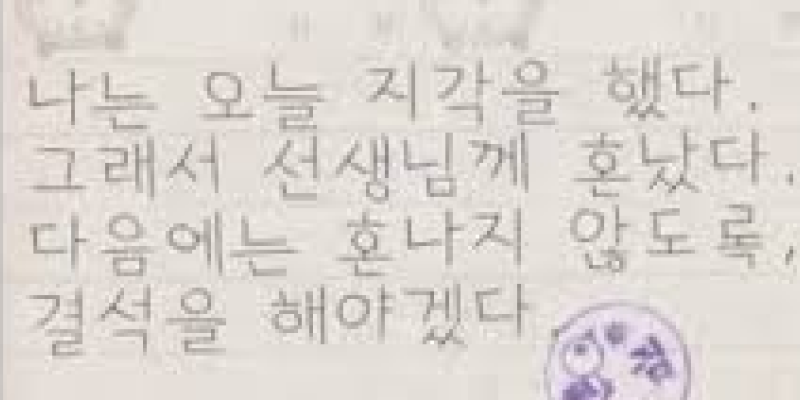 나는 오늘 지각을 했다.
그래서 선생님께 혼났다.
다음에는 혼나지 않도록,
결석을 해야겠다.